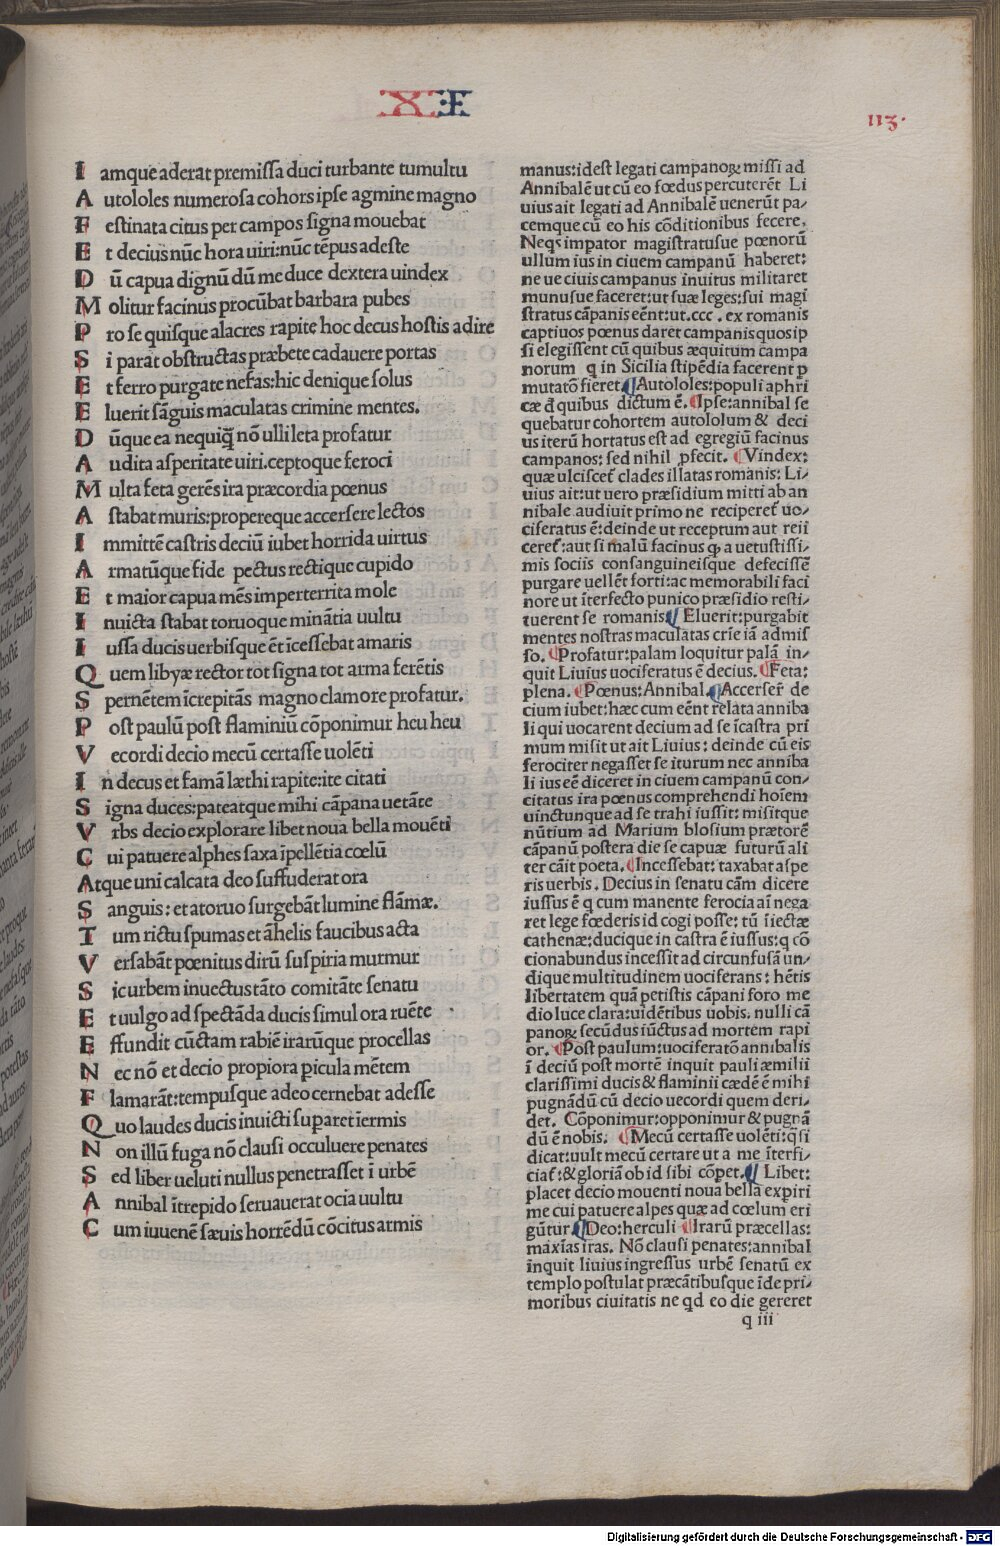 XI
113.
I amque aderat premissa duci turbante tumultu
A utololes numerosa cohors ipse agmine magno
F estinata citus per campos signa mouebat
E t decius nũc hora uiri:nũc tẽpus adeste
D ũ capua dignũ dũ me duce dextera uindex
M olitur facinus procũbat barbara pubes
P ro se quisque alacres rapite hoc decus hostis adire
S i parat obstructas præbete cadauere portas
E t ferro purgate nefas:hic denique solus
E luerit sãguis maculatas crimine mentes.
D ũque ea nequiq̃ nõ ulli leta profatur
A udita asperitate uiri.ceptoque feroci
M ulta feta gerẽs ira præcordia pœnus
A stabat muris:propereque accersere lectos
I mmittẽ castris deciũ iubet horrida uirtus
A rmatũque fide pectus rectique cupido
E t maior capua mẽs imperterrita mole
I nuicta stabat toruoque minãtia uultu
I ussa ducis uerbisque ẽt ĩcessebat amaris
Q uem libyæ rector tot signa tot arma ferẽtis
S pernẽtem ĩcrepitãs magno clamore profatur.
P ost paulũ post flaminiũ cõponimur heu heu
V ecordi decio mecũ certasse uolẽti
I n decus et famã læthi rapite:ite citati
S igna duces:pateatque mihi cãpana uetãte
V rbs decio explorare libet noua bella mouẽti
C ui patuere alphes saxa ĩpellẽtia cœlũ
Atque uni calcata deo suffuderat ora
S anguis: et a toruo surgebãt lumine flãmæ.
T um rictu spumas et ãhelis faucibus acta
V ersabãt pœnitus dirũ suspiria murmur
S ic urbem inuectus tãto comitãte senatu
E t uulgo ad spectãda ducis simul ora ruẽte
E ffundit cũctam rabiẽ irarũque procellas
N ec nõ et decio propiora picula mẽtem
F lamarãt:tempusque adeo cernebat adesse
Q uo laudes ducis inuicti suparet ĩermis
N on illũ fuga nõ clausi occuluere penates
S ed liber ueluti nullus penetrasset ĩ urbẽ
A nnibal ĩtrepido seruauerat ocia uultu
C um iuuenẽ sæuis horrẽdũ cõcitus armis
manus:idest legati campanoꝝ missi ad
Annibalẽ ut cũ eo fœdus percuterẽt Li
uius ait legati ad Annibalẽ uenerũt pa⸗
cemque cũ eo his cõditionibus fecere.
Neqꝫ impator magistratusue pœnorũ
ullum ius in ciuem campanũ haberet:
ne ue ciuis campanus inuitus militaret
munusue faceret:ut suæ leges:sui magi
stratus cãpanis eẽnt:ut.ccc. ex romanis
captiuos pœnus daret campanis quos ip
si elegissent cũ quibus æquitum campa
norum q in Sicilia stipẽdia facerent p
mutatõ fieret ¶Autololes:populi aphri
cæ đ quibus dictum ẽ. ¶Ipse:annibal se
quebatur cohortem autololum & deci
us iterũ hortatus est ad egregiũ facinus
campanos: sed nihil pfecit. ¶Vindex:
quæ ulciscet̃ clades illatas romanis: Li⸗
uius ait:ut uero præsidium mitti ab an
nibale audiuit primo ne reciperet̃ uo⸗
ciferatus ẽ:deinde ut receptum aut reii
ceret̃:aut si malũ facinus ꝙ a uetustissi⸗
mis sociis consanguineisque defecissẽ
purgare uellẽt forti:ac memorabili faci
nore ut ĩterfecto punico præsidio resti⸗
tuerent se romanis ¶ Eluerit:purgabit
mentes nostras maculatas crĩe iã admis
so. ¶Profatur:palam loquitur palã in⸗
quit Liuius uociferatus ẽ decius. ¶Feta:
plena. ¶Pœnus:Annibal. ¶Accerser̃ de
cium iubet:hæc cum eẽnt relata anniba
li qui uocarent decium ad se ĩcastra pri
mum misit ut ait Liuius: deinde cũ eis
ferociter negasset se iturum nec anniba
li ius eẽ diceret in ciuem campanũ con⸗
citatus ira pœnus comprehendi hoĩem
uinctunque ad se trahi iussit: misitque
nũtium ad Marium blosium prætorẽ
cãpanũ postera die se capuæ futurũ ali
ter cãit poeta. ¶Incessebat: taxabat aspe
ris uerbis. Decius in senatu cãm dicere
iussus ẽ q cum manente ferocia aĩ nega
ret lege fœderis id cogi posse: tũ ĩiectæ
cathenæ:ducique in castra ẽ iussus:q cõ
cionabundus incessit ad circunfusã un⸗
dique multitudinem uociferans: hẽtis
libertatem quã petistis cãpani foro me
dio luce clara:uidẽtibus uobis. nulli cã
panoꝝ secũdus iũctus ad mortem rapi
or. ¶Post paulum:uociferatõ annibalis
ĩ deciũ post mortẽ inquit pauli æmilii
clarissimi ducis & flaminii cædẽ ẽ mihi
pugnãdũ cũ decio uecordi quem deri⸗
det. Cõponimur:opponimur & pugnã
dũ ẽ nobis. ¶Mecũ certasse uolẽti:q̃si
dicat:uult mecũ certare ut a me ĩterfi⸗
ciat̃:& gloriã ob id sibi cõpet. ¶ Libet:
placet decio mouenti noua bella expiri
me cui patuere alpes quæ ad cœlum eri
gũtur ¶Deo:herculi ¶Irarũ præcellas:
maxĩas iras. Nõ clausi penates:annibal
inquit liuius ingressus urbẽ senatũ ex
templo postulat præcãtibusque ĩde pri⸗
moribus ciuitatis ne qd eo die gereret
q iii
Digitalisierung gefördert durch die Deutsche Forschungsgemeinschaft - DFG